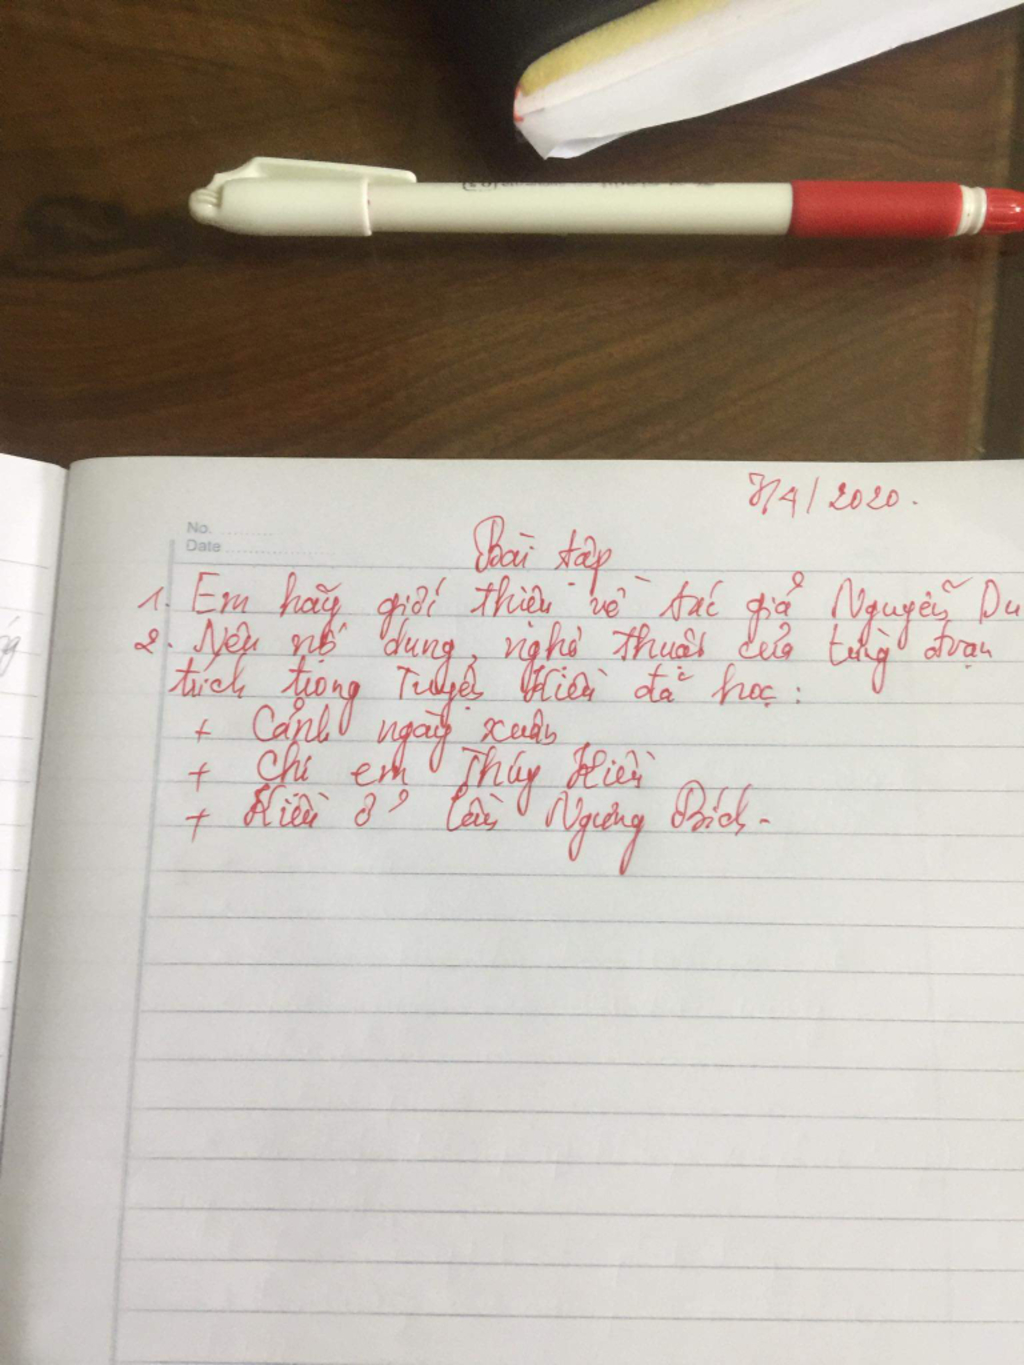 7/4/2020.
No.
Date
Bài tập
1. Em hãy giới thiệu về tác giả Nguyễn Du
2. Nêu nội dung, nghệ thuật của từng đoạn
trích trong Truyện Kiều đã học:
+ Cảnh ngày xuân
+ Chị em Thúy Kiều
+ Kiều ở lầu Ngưng Bích.